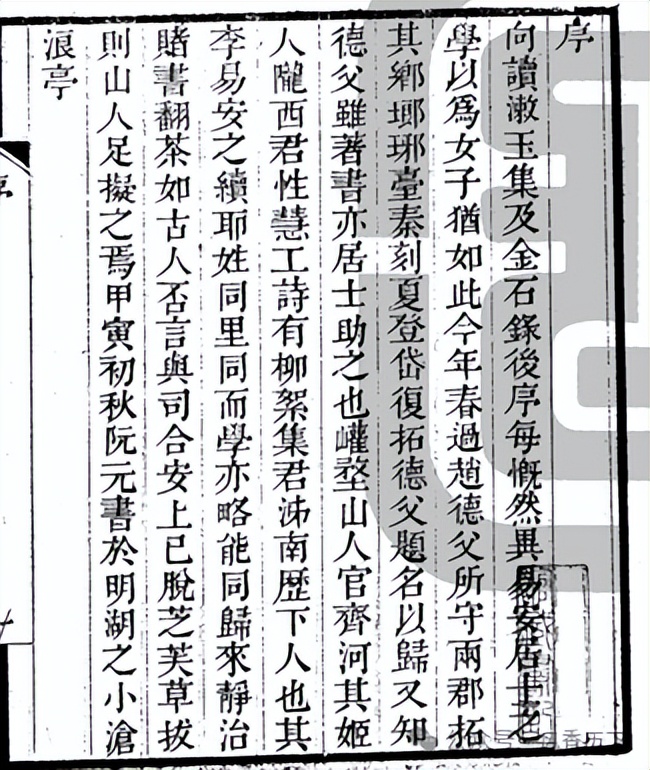 序
向讀漱玉集及金石錄後序每慨然異易安居士之
學以爲女子猶如此今年春過趙德父所守兩郡拓
其鄉瑯琊臺秦刻夏登岱復拓德父題名以歸又知
德父雖著書亦居士助之也巏堥山人官齊河其姬
人隴西君性慧工詩有柳絮集君泲南歷下人也其
李易安之續耶姓同里同而學亦略能同歸來靜治
賭書翻茶如古人否言與司合安上已脫芝芙草拔
則山人足擬之焉甲寅初秋阮元書於明湖之小滄
浪亭